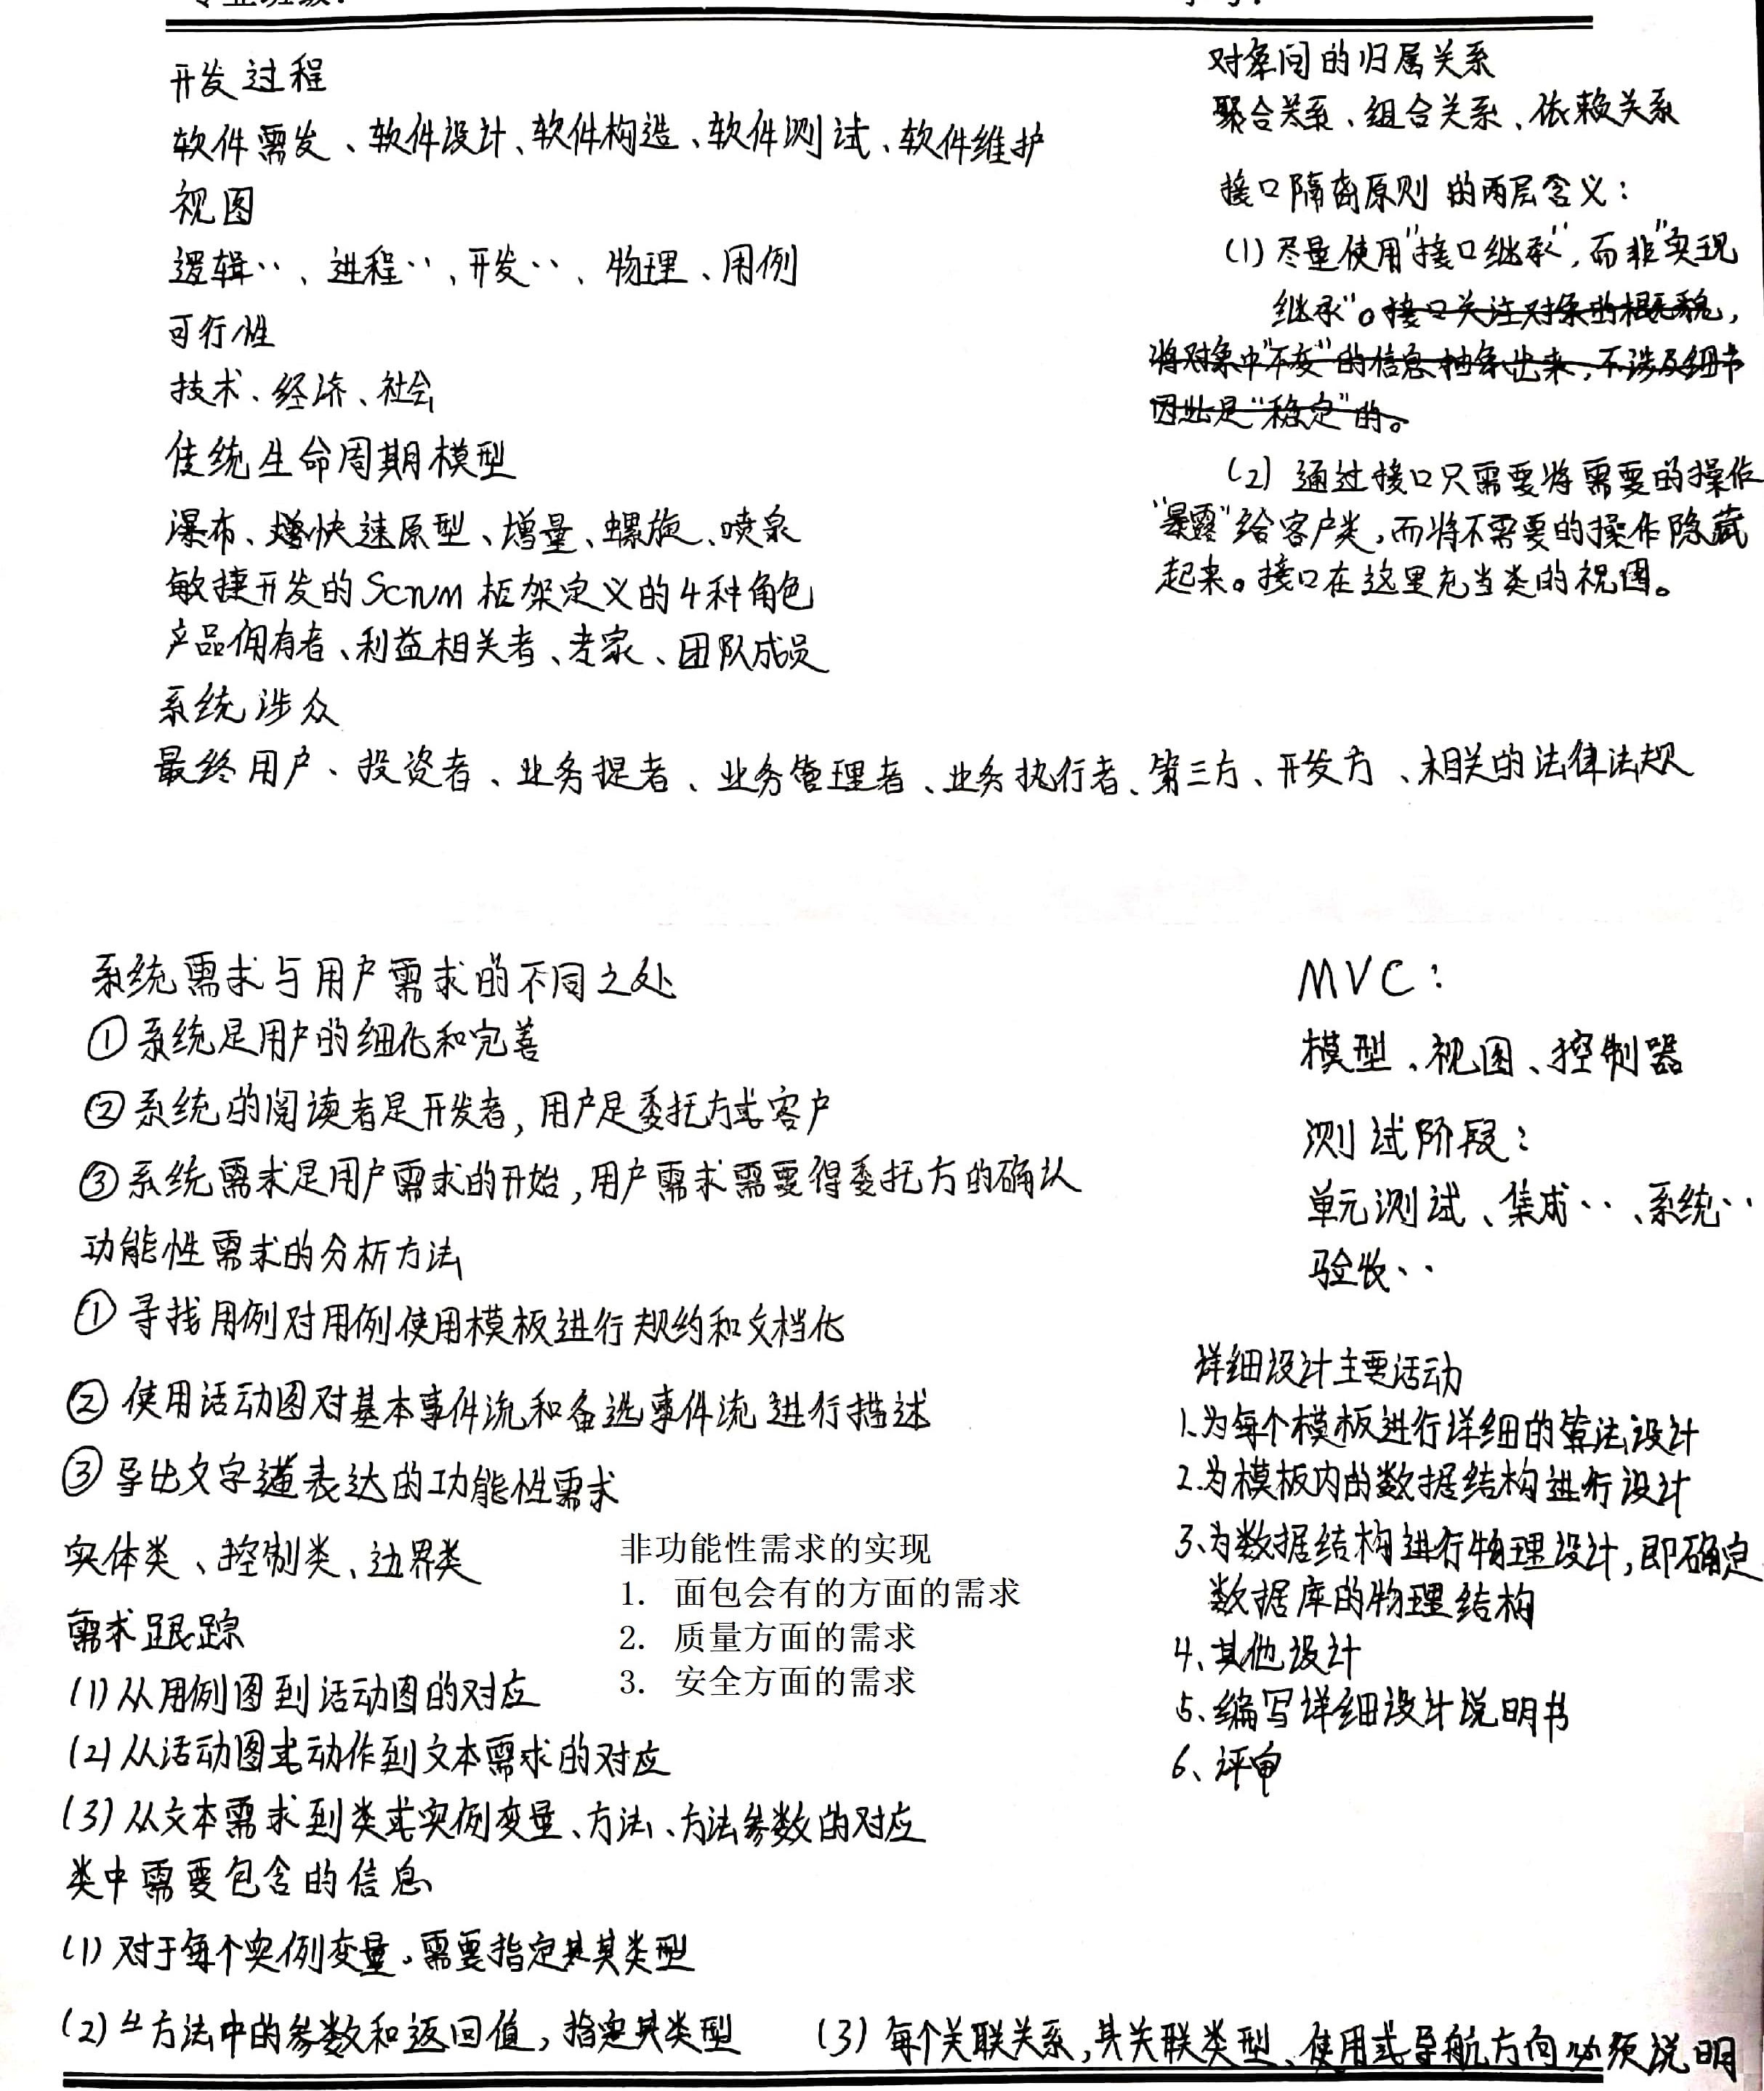 开发过程
软件需发、软件设计、软件构造、软件测试、软件维护
视图
逻辑··、进程··、开发··、物理、用例
可行性
技术、经济、社会
传统生命周期模型
瀑布、快速原型、增量、螺旋、喷泉
敏捷开发的Scrum框架定义的4种角色
产品佣有者、利益相关者、专家、团队成员
系统涉众
最终用户、投资者、业务提者、业务管理者、业务执行者、第三方、开发方、相关的法律法规
对象间的归属关系
聚合关系、组合关系、依赖关系
接口隔离原则的两层含义：
(1)尽量使用"接口继承"，而非"实现
继承"。接口关注对象的概貌，
将对象中"不变"的信息抽象出来，不涉及细节
因此是"稳定"的。
(2)通过接口只需要将需要的操作
"暴露"给客户类，而将不需要的操作隐藏
起来。接口在这里充当类的视图。
系统需求与用户需求的不同之处
①系统是用户的细化和完善
②系统的阅读者是开发者，用户是委托方或客户
③系统需求是用户需求的开始，用户需求需要得委托方的确认
功能性需求的分析方法
①寻找用例对用例使用模板进行规约和文档化
②使用活动图对基本事件流和备选事件流进行描述
③导出文字表达的功能性需求
实体类、控制类、边界类
需求跟踪
(1)从用例图到活动图的对应
(2)从活动图或动作到文本需求的对应
(3)从文本需求到类或实例变量、方法、方法参数的对应
类中需要包含的信息
(1)对于每个实例变量，需要指定其类型
(2)方法中的参数和返回值，指定其类型
(3)每个关联关系，其关联类型、使用或导航方向必须说明
非功能性需求的实现
1. 面包会有的方面的需求
2. 质量方面的需求
3. 安全方面的需求
MVC：
模型、视图、控制器
测试阶段：
单元测试、集成··、系统··
验收··
详细设计主要活动
1.为每个模板进行详细的算法设计
2.为模板内的数据结构进行设计
3.为数据结构进行物理设计，即确定
数据库的物理结构
4、其他设计
5、编写详细设计说明书
6、评审